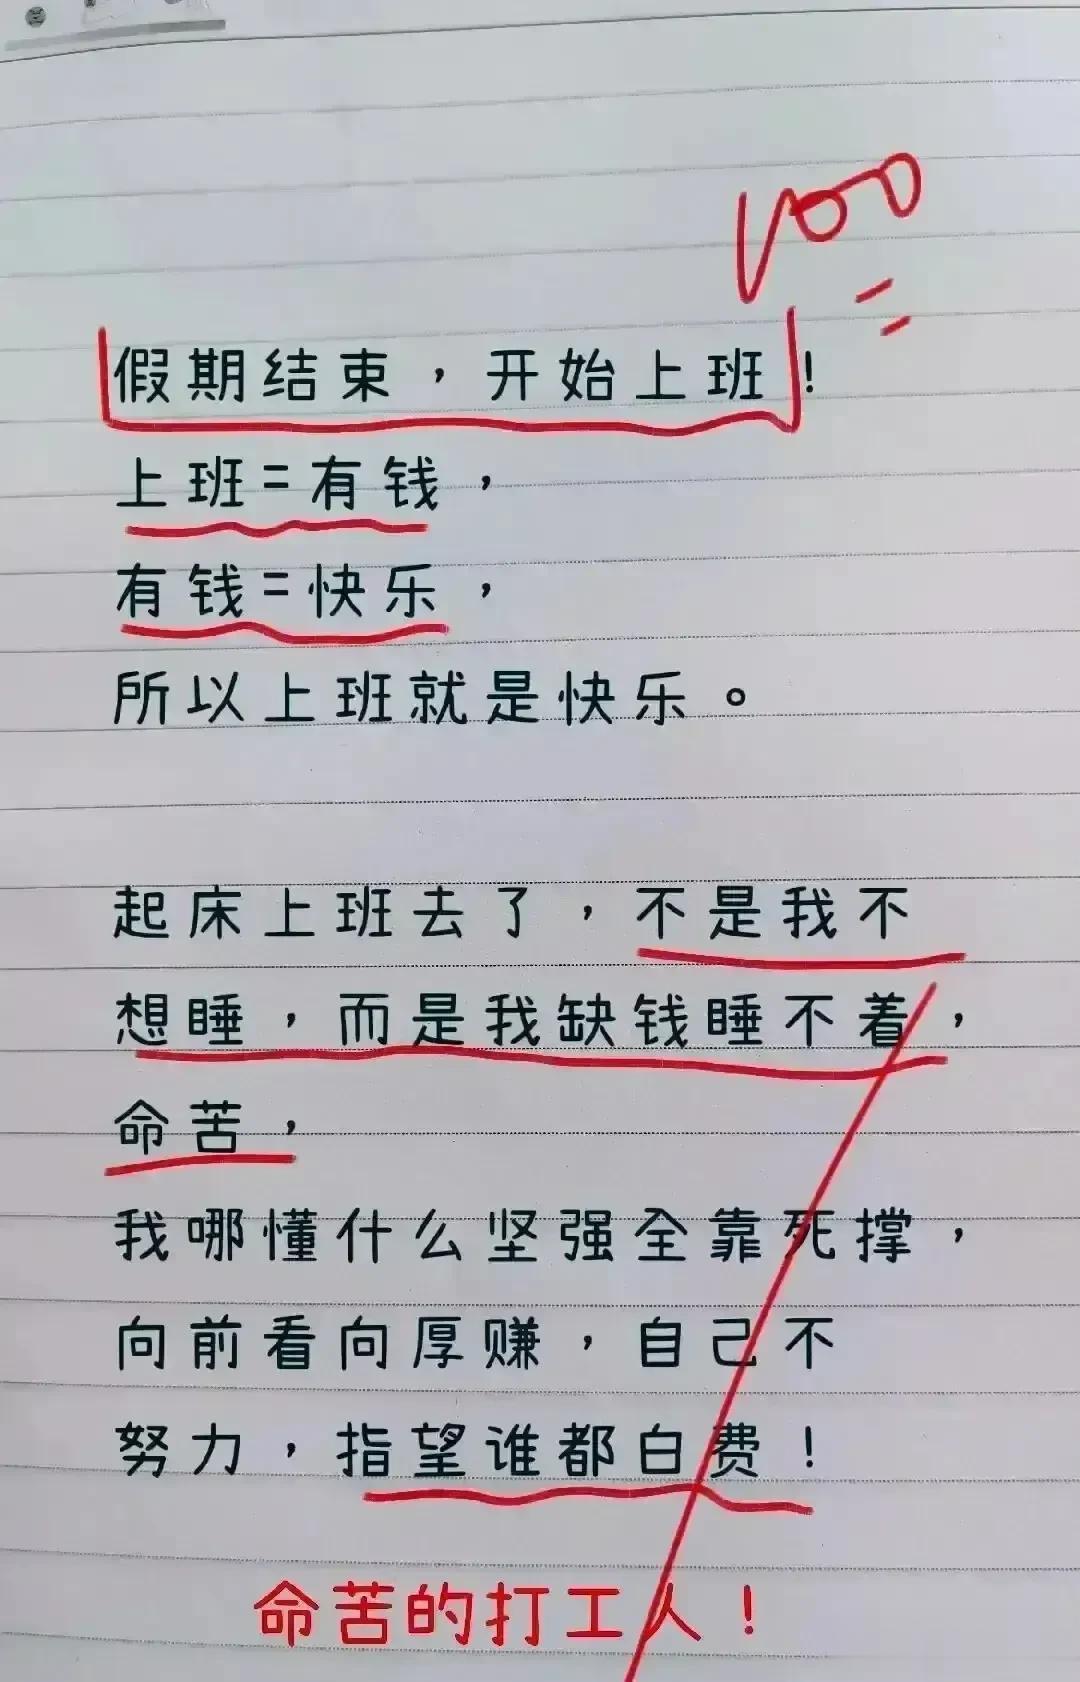 100
假期结束，开始上班！
上班=有钱，
有钱=快乐，
所以上班就是快乐。
起床上班去了，不是我不
想睡，而是我缺钱睡不着，
命苦，
我哪懂什么坚强全靠死撑，
向前看向厚赚，自己不
努力，指望谁都白费！
命苦的打工人！